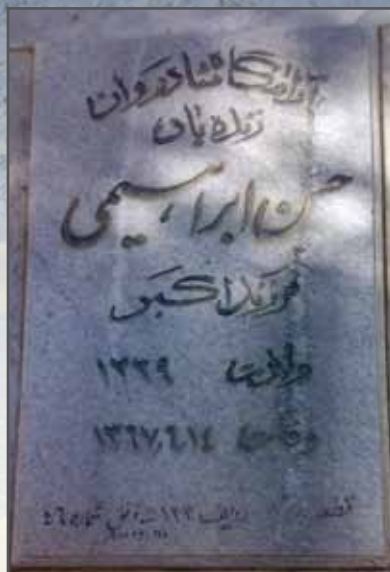 آرامگاه شادروان
زنده یاد
حسن ابراهیمی
فرزند اکبر
ولادت ۱۳۳۹
وفات ۱۳۶۷,۶,۱۴
ردیف ۱۲۳